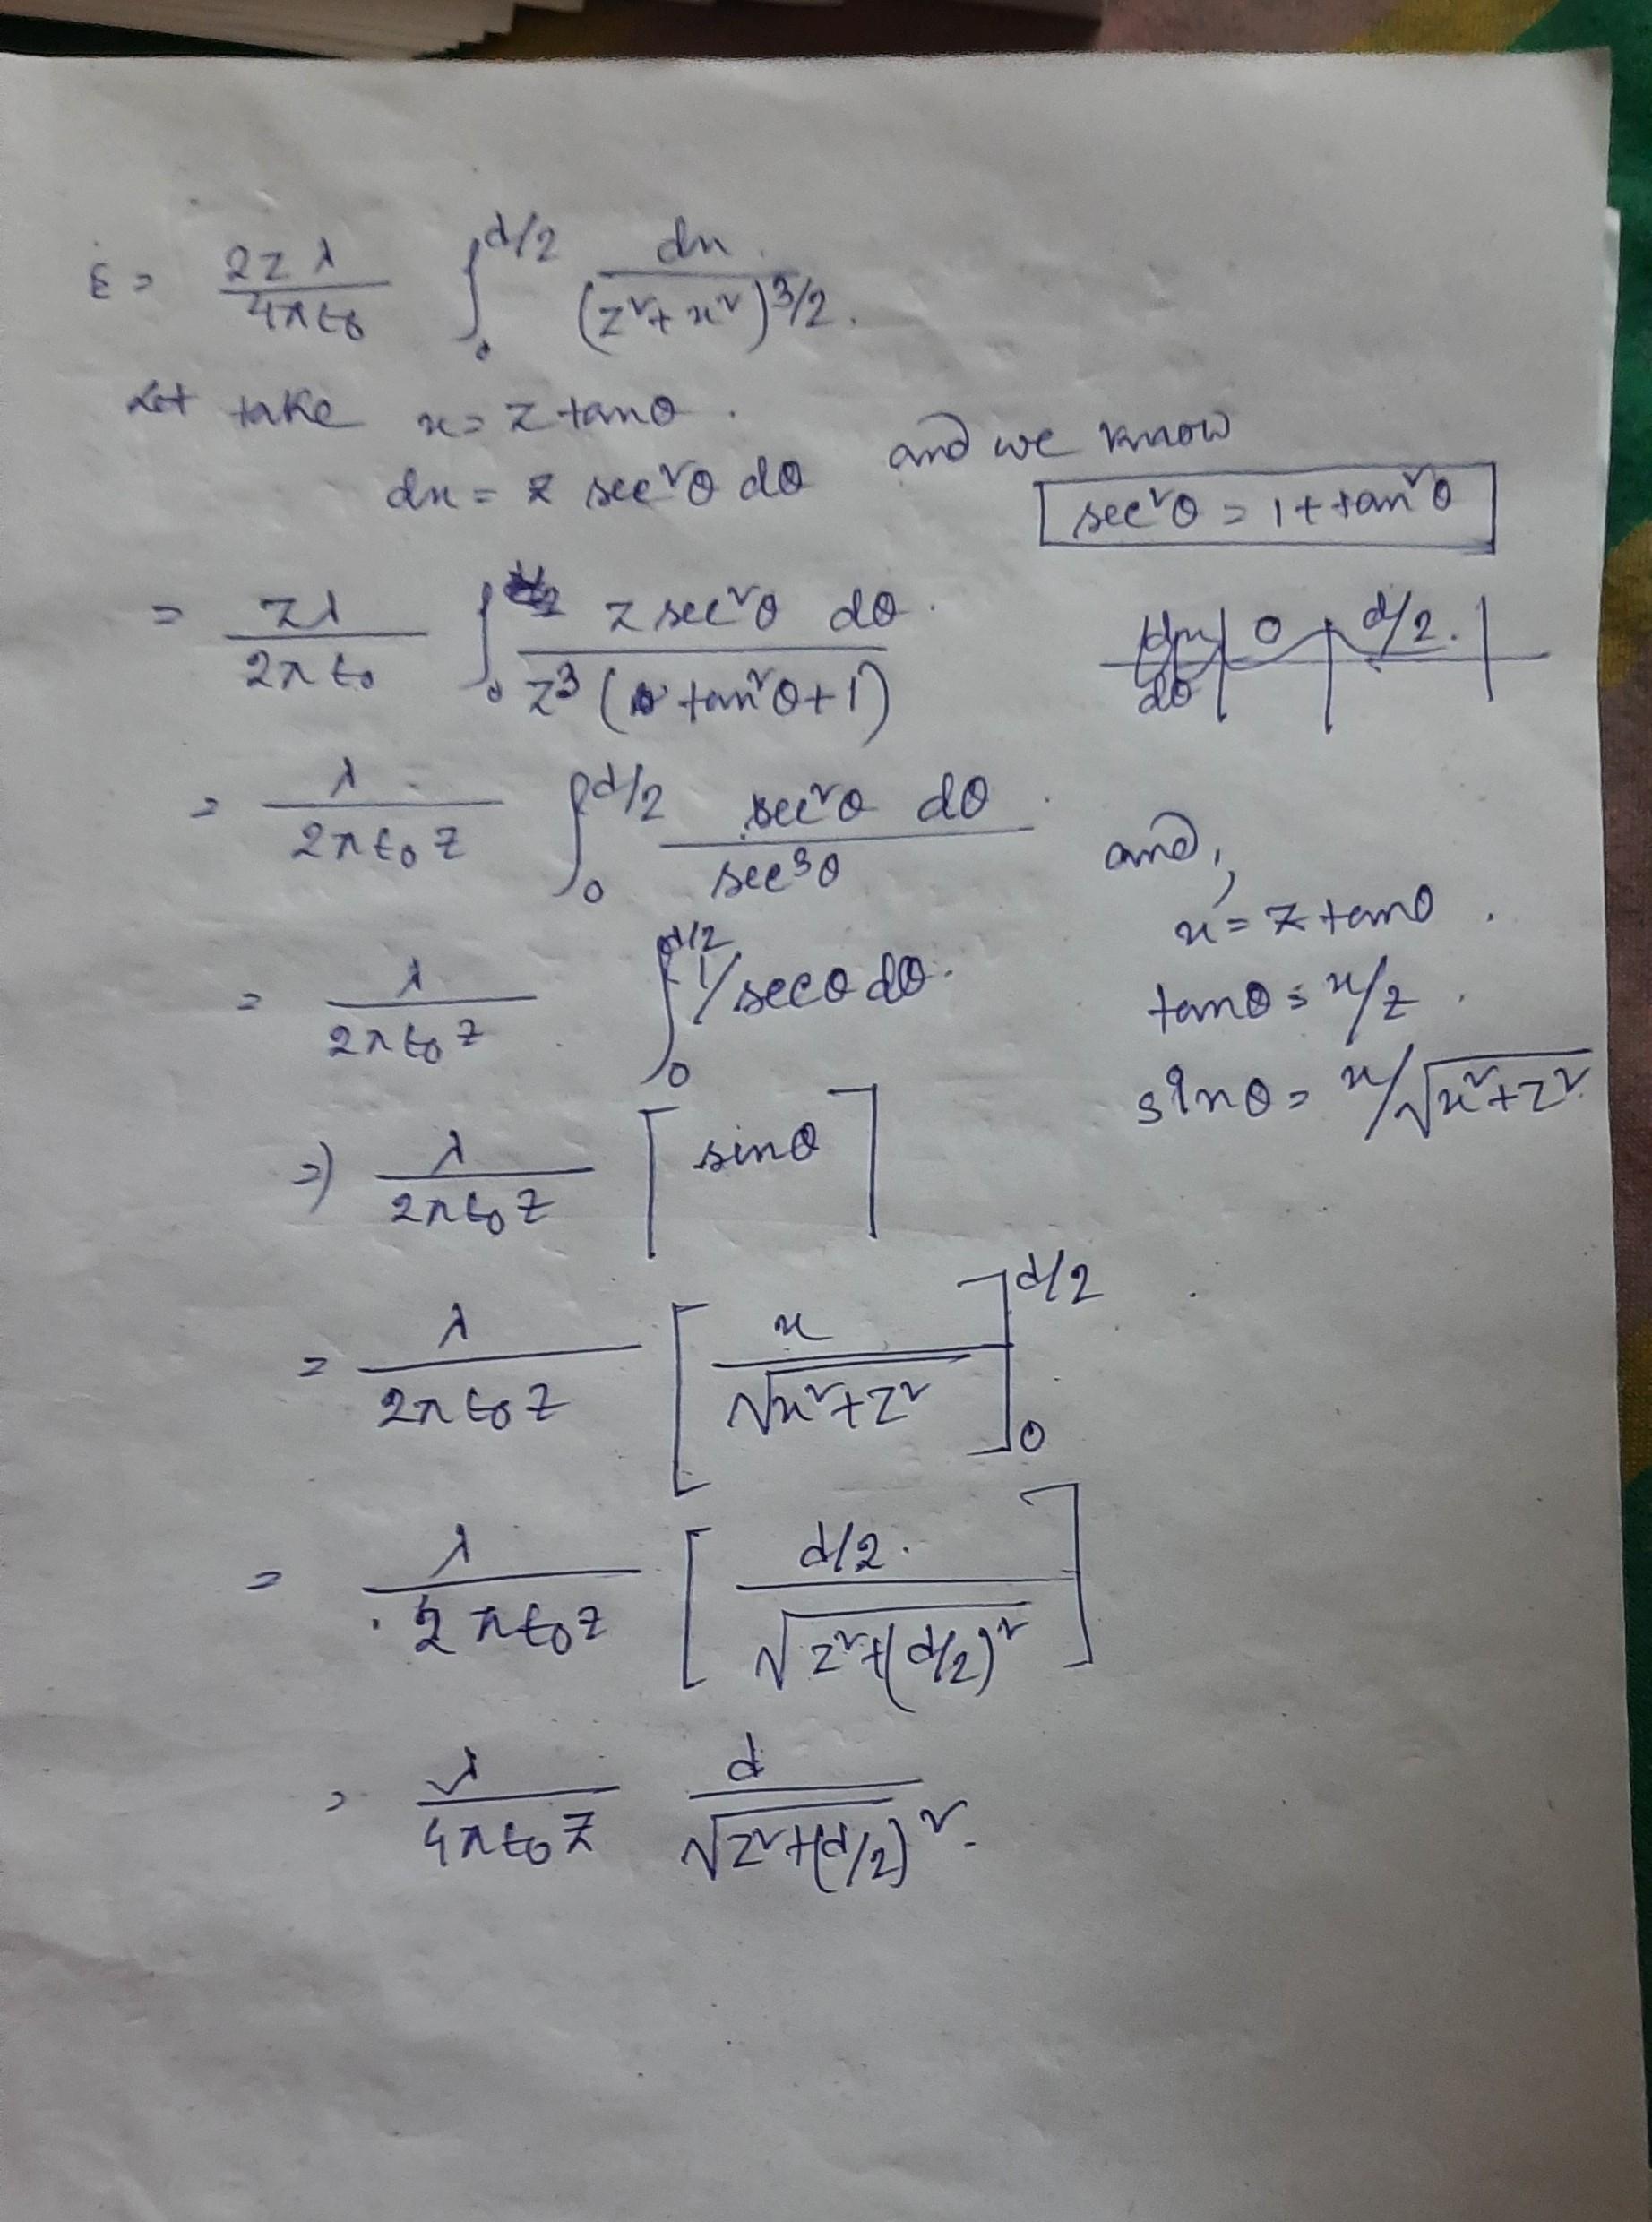 E = 2zλ/4πε₀ ∫₀^{d/2} dx/(z²+x²)^{3/2}.
Let take x = z tanθ.
dx = z sec²θ dθ and we know
sec²θ = 1 + tan²θ
= zλ/2πε₀ ∫₀ z sec²θ dθ / z³(tan²θ+1)
dx 0 d/2.
dθ
= λ/2πε₀z ∫₀^{d/2} sec²θ dθ / sec³θ
and,
x = z tanθ.
= λ/2πε₀z ∫₀^{d/2} 1/secθ dθ.
tanθ = x/z.
sinθ = x/√x²+z²
⇒ λ/2πε₀z [sinθ]
= λ/2πε₀z [x/√x²+z²]₀^{d/2}
= λ/2πε₀z [d/2. / √z²+(d/2)²]
= λ/4πε₀z d/√z²+(d/2)².